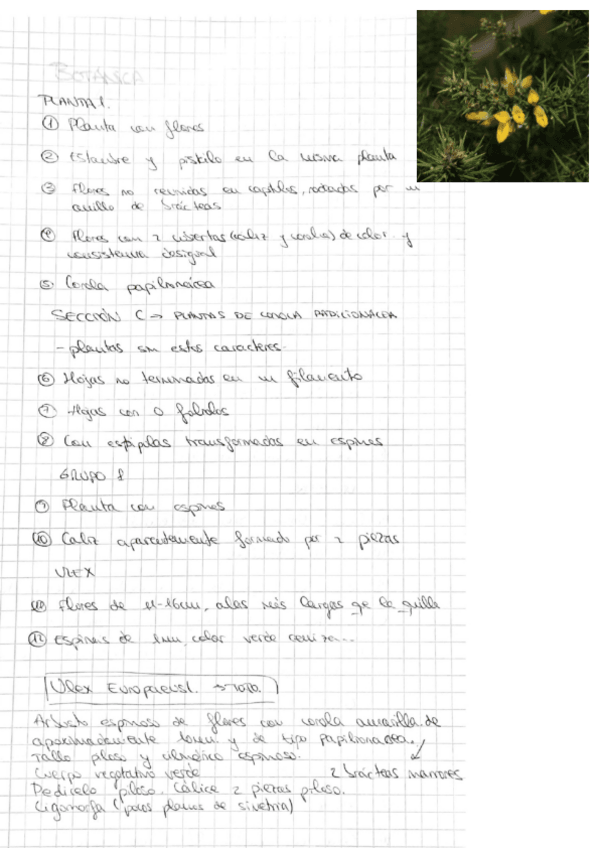 BOTÁNICA
PLANTA 1.
① Planta con flores
② Estambre y pistilo en la misma planta
③ Flores no reunidas en capítulos, rodadas por un
anillo de brácteas
④ Flores con 2 cubiertas (cáliz y corola) de color y
consistencia desigual
⑤ Corola papilionácea
SECCIÓN C → PLANTAS DE COROLA
- plantas sin estos caracteres.
⑥ Hojas no terminadas en un filamento
⑦ Hojas con 0 foliolos
⑧ Con estípulas transformadas en espinas
GRUPO 1
⑨ Planta con espinas
⑩ Caliz aparentemente formado por 2 piezas
ULEX
Flores de 11-16mm, alas más largas qe la quilla
espinas de 1mm, color verde
Ulex Europaeus L. → TOJO.
Arbusto espinoso de flores con corola amarilla de
aproximadamente y de tipo papilionacea.
Tallo piloso y cilíndrico espinoso.
Cuerpo vegetativo verde
2 brácteas marrones
Pedicelo piloso. Cálice 2 piezas piloso.
Zigomorfa (pocos planos de simetría)